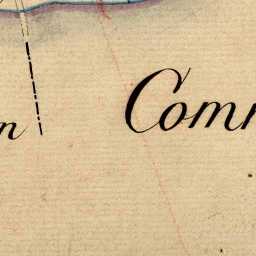 n Com